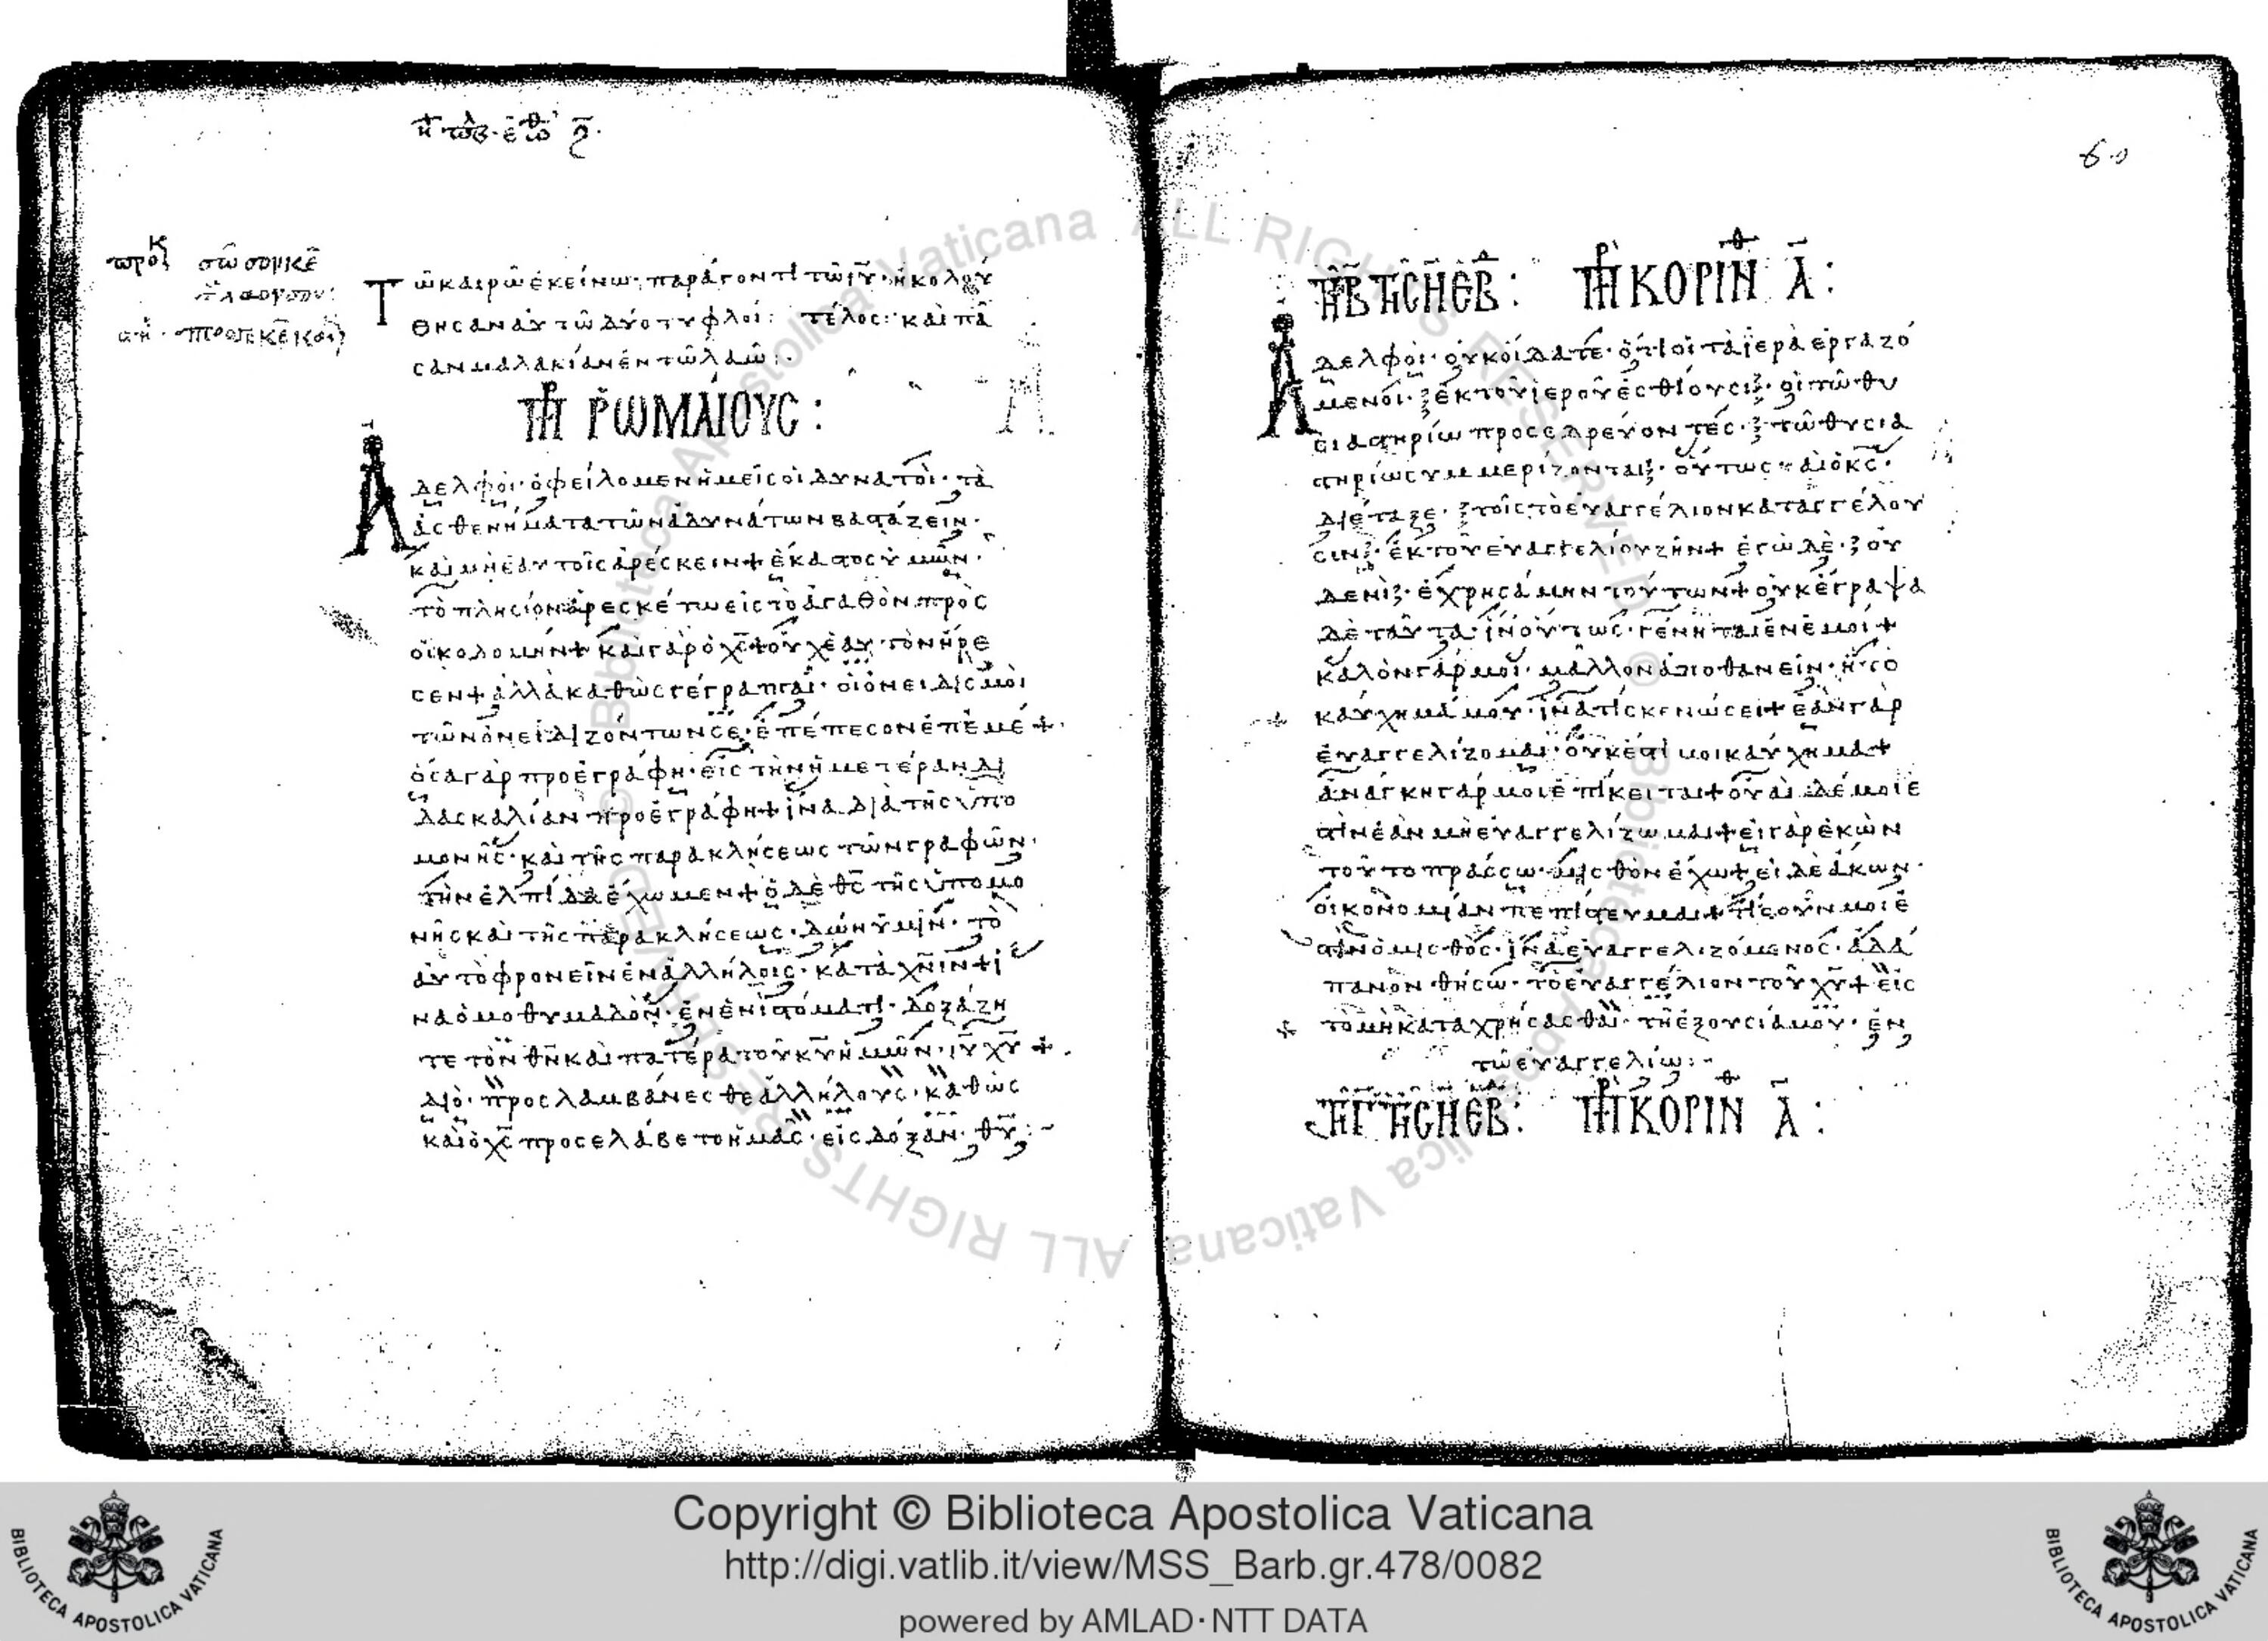 Τῶ καιρῶ ἐκείνω· παράγοντι τῶ ιυ· ἠκολού
θησαν αὐτῶ δύο τυφλοί: τέλος: καὶ πᾶ
σαν μαλακίαν ἐν τῶ λαῶ:
ΡΩΜΑΙΟΥC:
Ἀδελφοὶ· ὀφείλομεν ἡμεῖς οἱ δυνατοὶ· τὰ
ἀσθενήματα τῶν ἀδυνάτων βαστάζειν·
καὶ μὴ ἑαυτοῖς ἀρέσκειν + ἕκαστος ὑμῶν·
τὸ πλησίον ἀρεσκέτω εἰς τὸ ἀγαθὸν πρὸς
οἰκοδομήν + καὶ γὰρ ὁ χς + οὐχ ἑαυτὸν ἤρε
σεν + ἀλλὰ καθὼς γέγραπται· οἱ ὀνειδισμοὶ
τῶν ὀνειδιζόντων σε· ἐπέπεσον ἐπ' ἐμέ +
ὅσα γὰρ προεγράφη· εἰς τὴν ἡμετέραν δι
δασκαλίαν προεγράφη + ἵνα διὰ τῆς ὑπο
μονῆς· καὶ τῆς παρακλήσεως τῶν γραφῶν·
τὴν ἐλπίδα ἔχωμεν + ὁ δὲ θς τῆς ὑπομο
νῆς καὶ τῆς παρακλήσεως· δώη ὑμῖν· τὸ
αὐτὸ φρονεῖν ἐν ἀλλήλοις· κατὰ χν ιν + ἵ
να ὁμοθυμαδὸν· ἐν ἑνὶ στόματι· δοξάζη
τε τὸν θν καὶ πατέρα τοῦ κυ ἡμῶν· ιυ χυ +
διὸ· προσλαμβάνεσθε ἀλλήλους· καθὼς
καὶ ὁ χς προσελάβετο ἡμᾶς· εἰς δόξαν· θυ:
60
ΚΟΡΙΝ Α:
Ἀδελφοὶ· οὐκ οἴδατε· ὅτι οἱ τὰ ἱερὰ ἐργαζό
μενοι· ἐκ τοῦ ἱεροῦ ἐσθίουσι· οἱ τῶ θυ
σιαστηρίω προσεδρεύοντές· τῶ θυσια
στηρίω συμμερίζονται· οὕτως καὶ ὁ κς·
διέταξε· τοῖς τὸ εὐαγγέλιον καταγγέλου
σιν· ἐκ τοῦ εὐαγγελίου ζῆν + ἐγὼ δὲ· οὐ
δενὶ· ἐχρησάμην τούτων + οὐκ ἔγραψα
δὲ ταῦτα· ἵν' οὕτως· γένηται ἐν ἐμοί +
καλὸν γάρ μοι· μᾶλλον ἀποθανεῖν· ἢ το
καύχημά μου· ἵνα τίς κενώσει + ἐὰν γὰρ
εὐαγγελίζομαι· οὐκ ἔστι μοι καύχημα +
ἀνάγκη γάρ μοι ἐπίκειται + οὐαὶ δέ μοι ἐ
στὶν ἐὰν μὴ εὐαγγελίζωμαι + εἰ γὰρ ἑκὼν
τοῦτο πράσσω· μισθὸν ἔχω + εἰ δὲ ἄκων·
οἰκονομίαν πεπίστευμαι + τίς οὖν μοι ἐ
στὶν ὁ μισθός· ἵνα εὐαγγελιζόμενος· ἀδά
πανον θήσω· τὸ εὐαγγέλιον τοῦ χυ + εἰς
τὸ μὴ καταχρήσασθαι· τῆ ἐξουσία μου· ἐν
τῶ εὐαγγελίω:
ΚΟΡΙΝ Α:
Copyright © Biblioteca Apostolica Vaticana
http://digi.vatlib.it/view/MSS_Barb.gr.478/0082
powered by AMLAD·NTT DATA
BIBLIOTECA APOSTOLICA VATICANA
BIBLIOTECA APOSTOLICA VATICANA